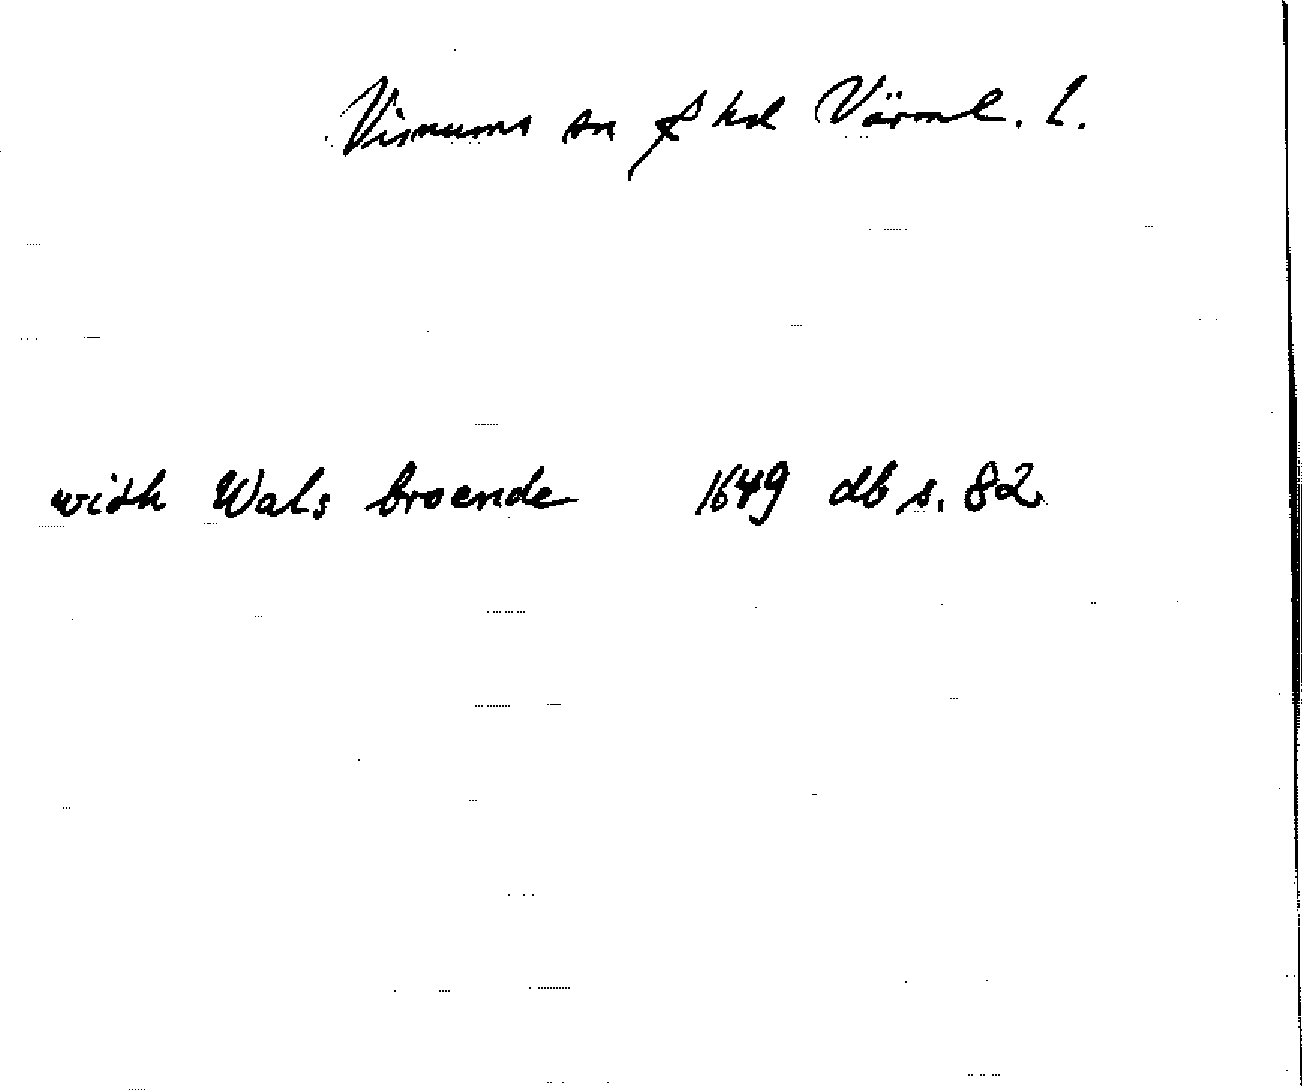 Visnums sn f hd Värml. l.
with Wals broende 1649 db s. 82